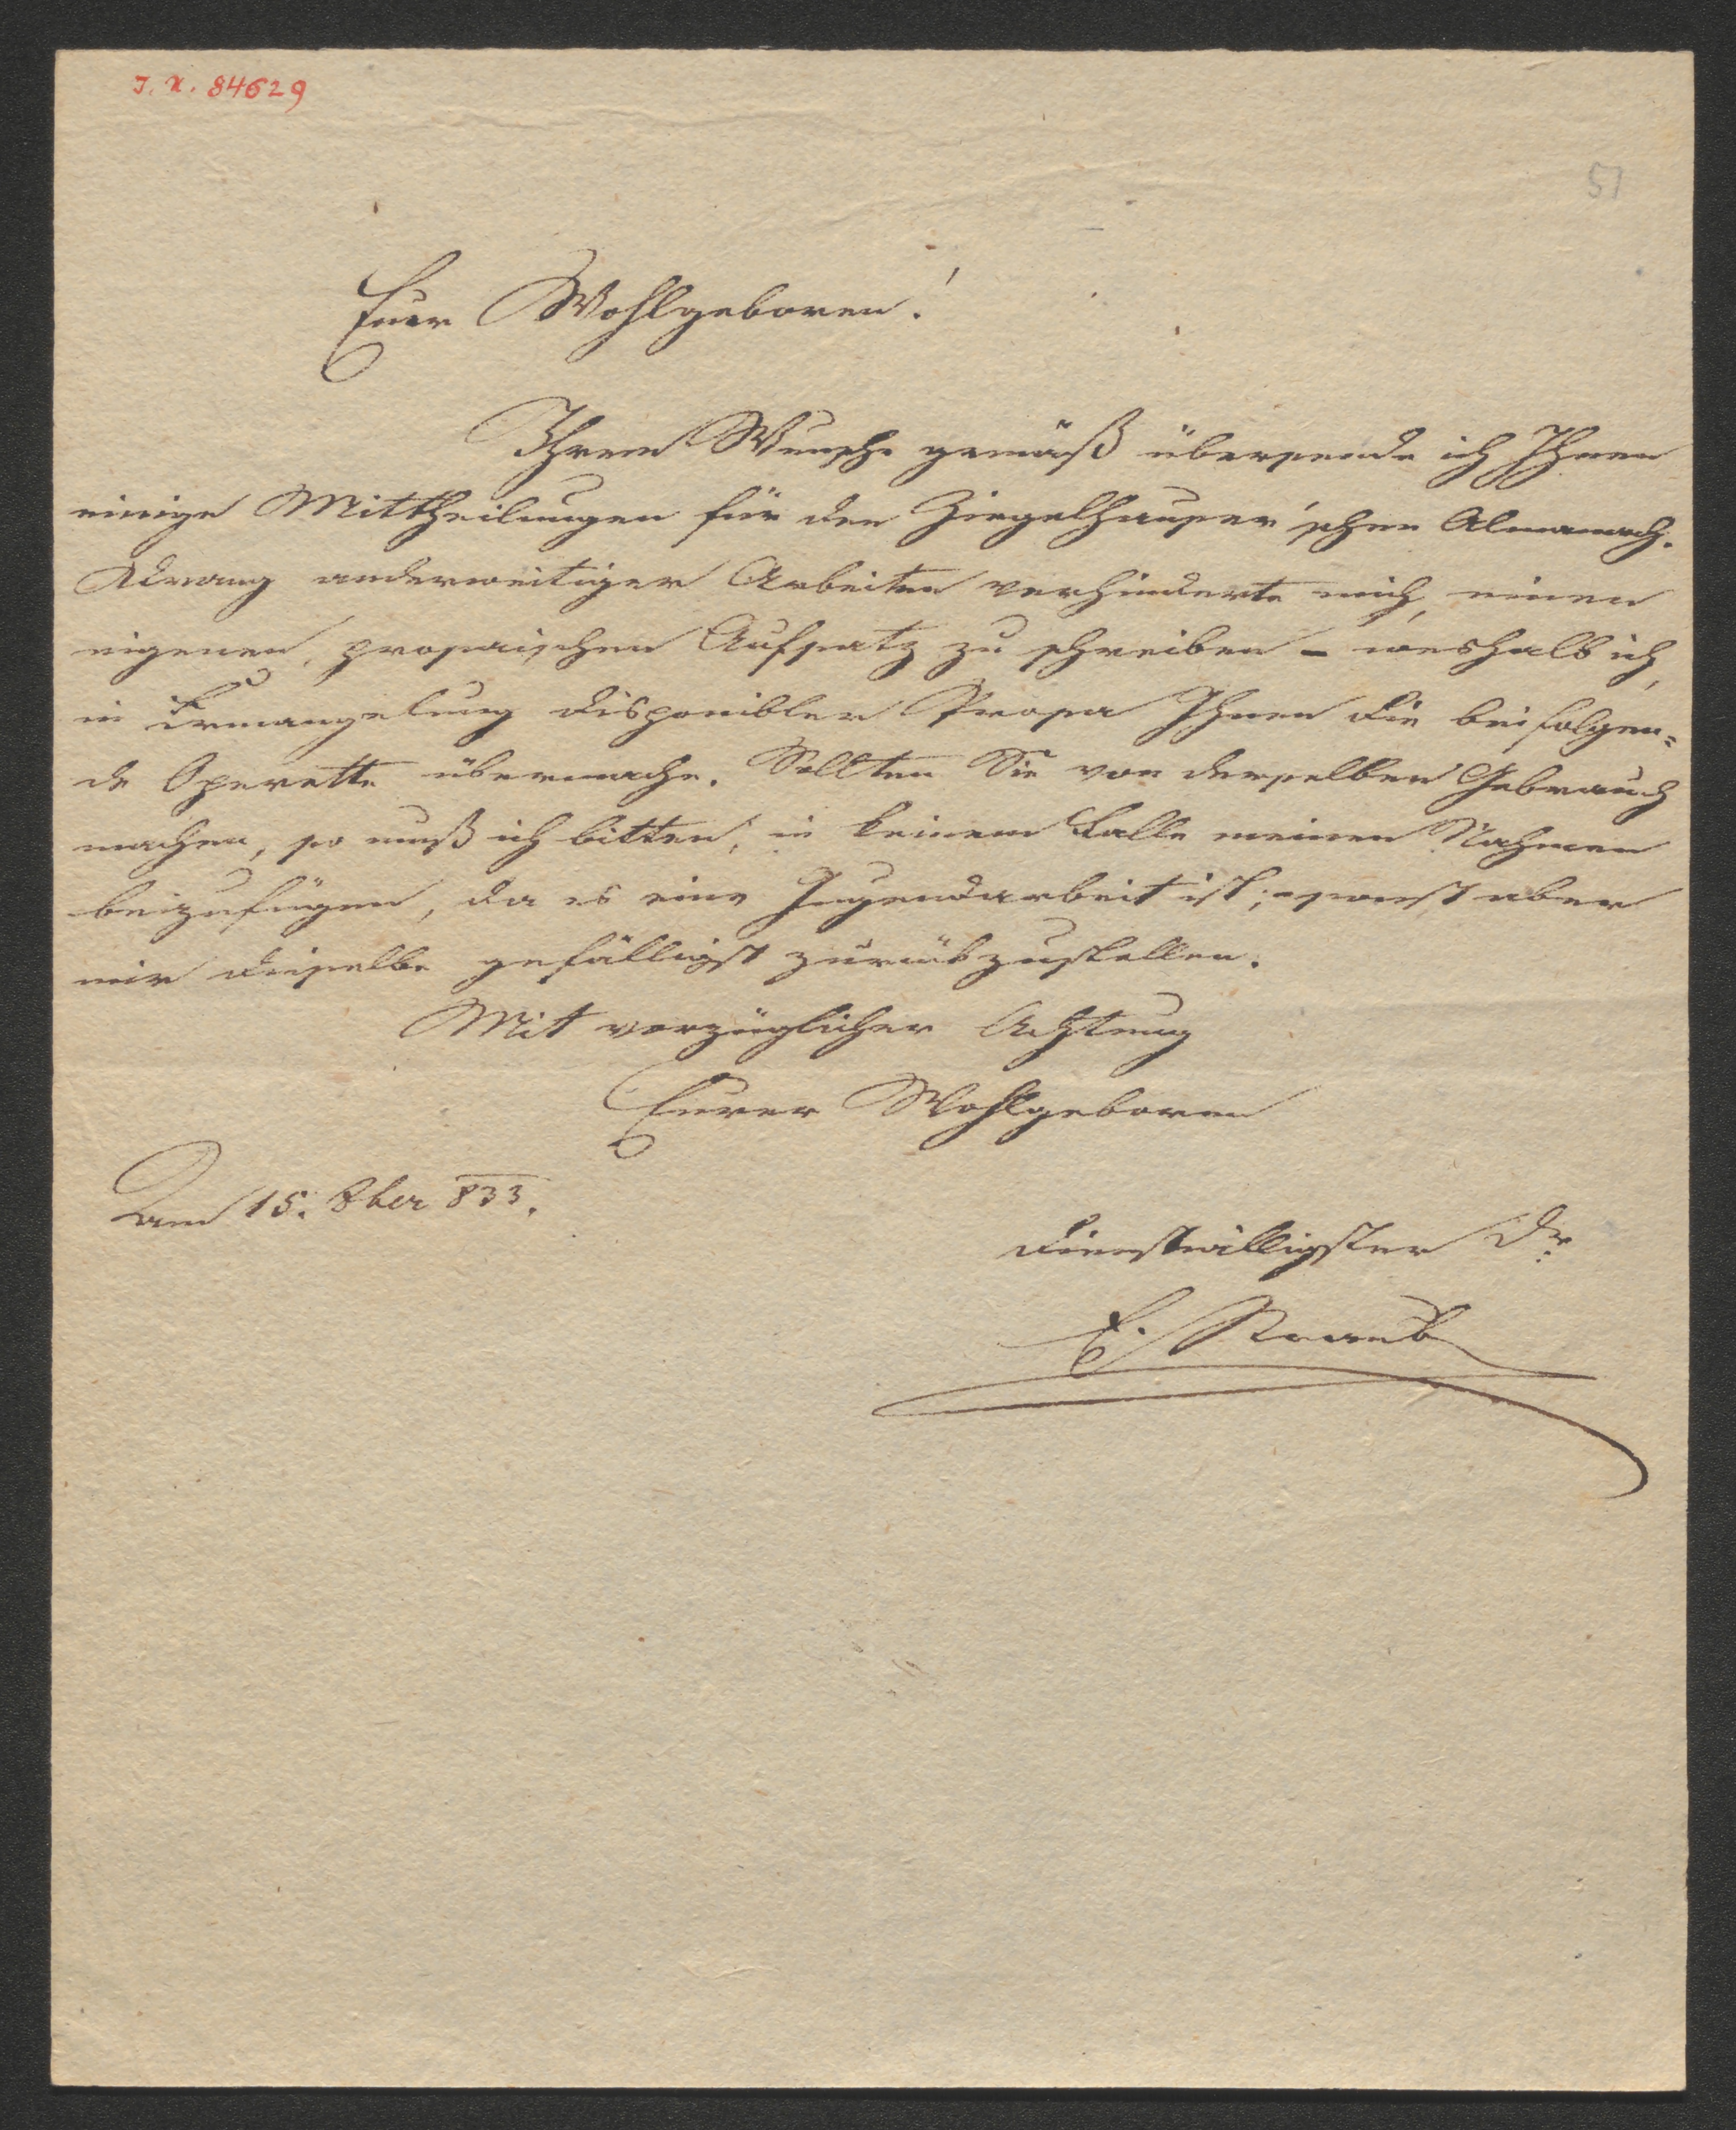 I. N. 84629
51
Euer Wohlgeboren!
Ihrem Wunsche gemäß übersende ich Ihnen
einige Mittheilungen für den Ziegelhauser'schen Almanach.
Andrang anderweitiger Arbeiten verhinderte mich, einen
eigenen, prosaischen Aufsatz zu schreiben – weshalb ich,
in Ermangelung disponibler Prosa Ihnen die beifolgen=
de Operette übermache. Sollten Sie von derselben Gebrauch
machen, so muß ich bitten, in keinem Falle meinen Nahmen
beizufügen, da es eine Jugendarbeit ist; sonst aber
mir dieselbe gefälligst zurückzustellen.
Mit vorzüglicher Achtung
Eurer Wohlgeboren
Am 15. 8ber 833.
dienstwilligster Dr
E. Straub